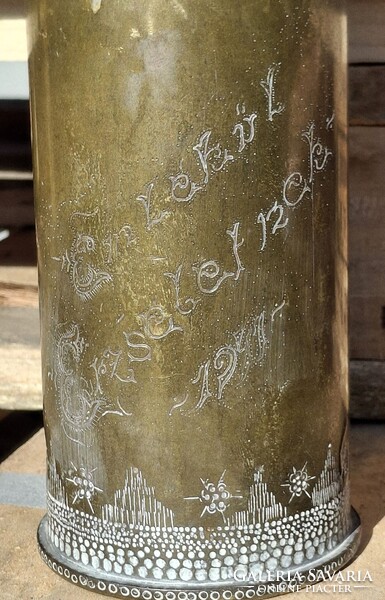 Emlékül
Erzsébetnek
GALERIA SAVARIA
ONLINE PIACTER